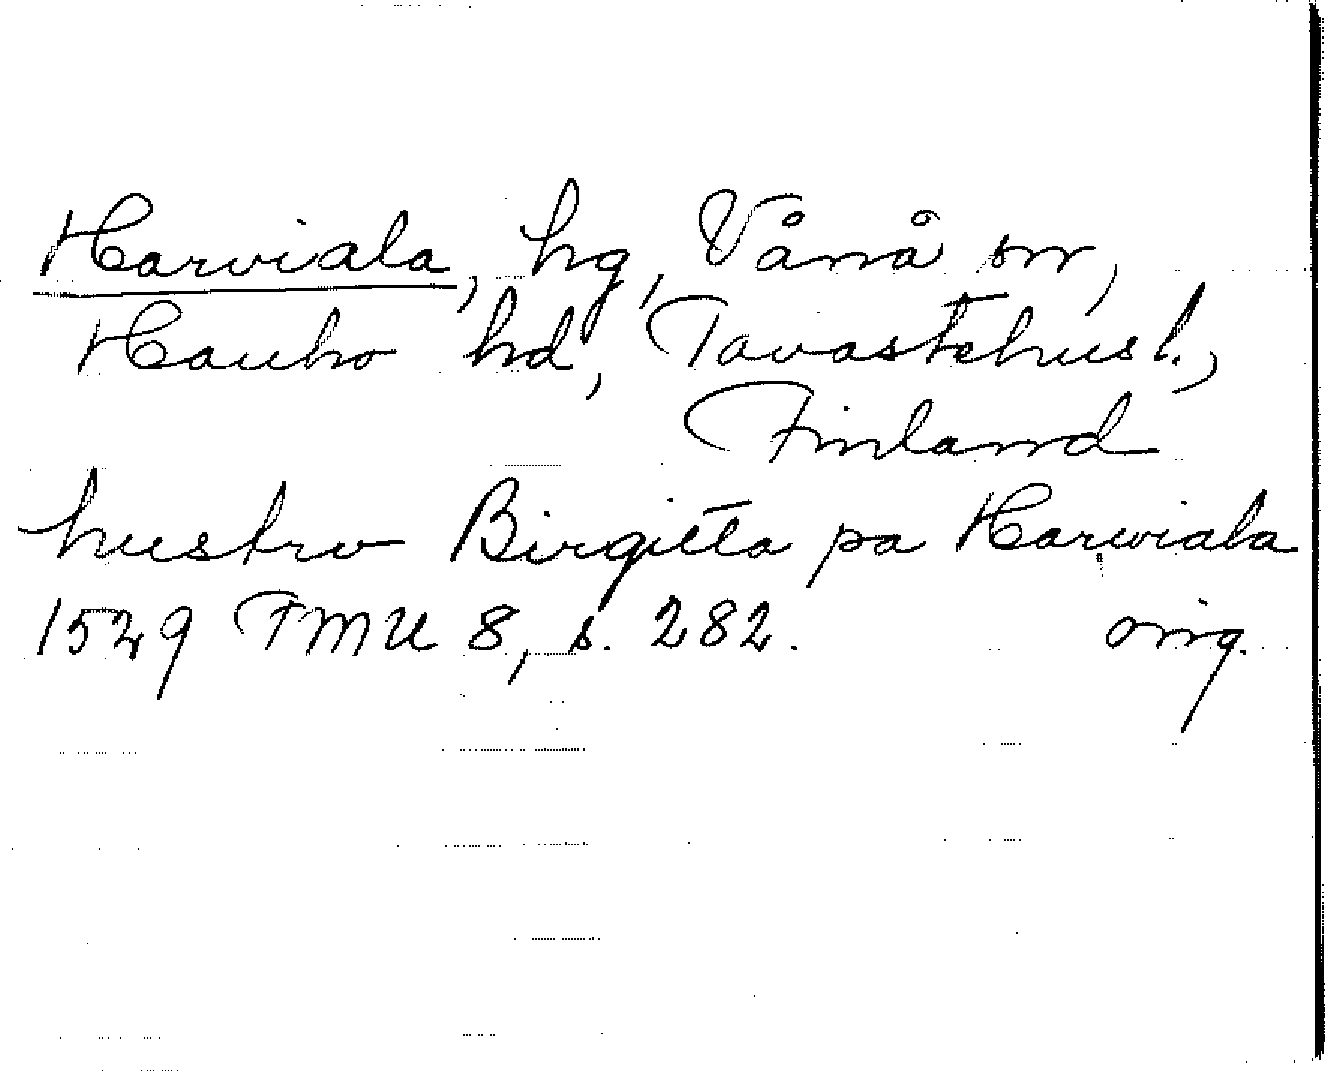 Harviala, hg, Vånå sn,
Hauho hd, Tavastehus l.,
Finland
hustro Birgitta pa Harwiala
1529 FMU 8, s. 282. orig.